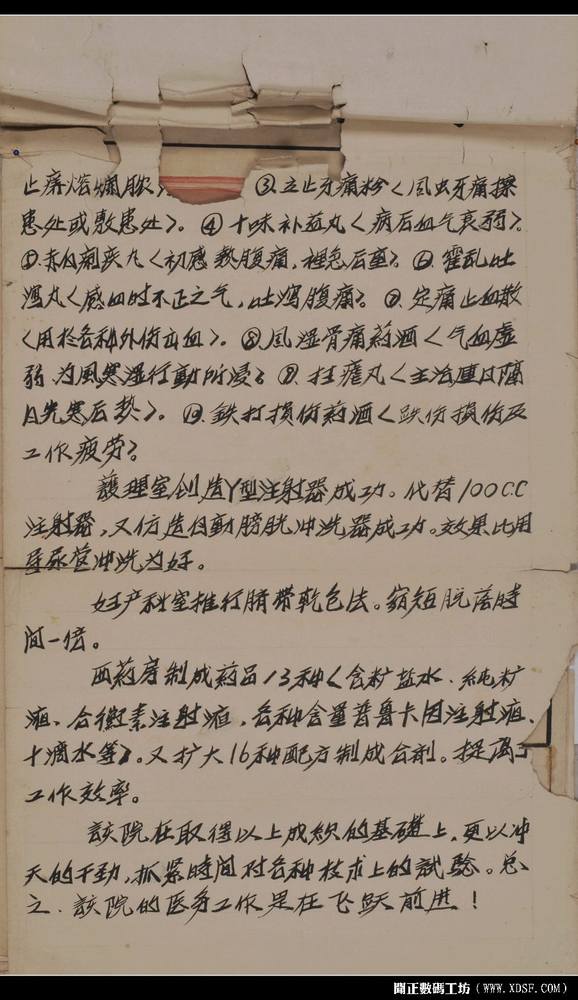 止痛熔爛膿 ③.立止牙痛粉<風虫牙痛擦
患处或敷患处>。④十味补益丸<病后血气衰弱>。
⑤.赤白痢疾丸<初感熱腹痛,裡急后重>。⑥.霍乱吐
瀉丸<感四时不正之气,吐瀉腹痛>。⑦.定痛止血散
<用於各种外伤出血>。⑧.風湿骨痛药酒<气血虚
弱.为風寒湿行動所浸>。⑨.瘧丸<主治連日隔
日先寒后热>。⑩.鉄打損伤药酒<跌伤損伤及
工作疲劳>。
護理室創造Y型注射器成功。代替100C.C
注射器,又仿造自動膀胱冲洗器成功。效果比用
导尿管冲洗为好。
妇产科室推行脐帶乾包法。縮短脱落時
间一倍。
西药房制成药品13种<含矿盐水.純矿
液、合衡素注射液,各种含量普鲁卡因注射液、
十滴水等>。又扩大16种配方制成合剂。提高了
工作效率。
該院在取得以上成績的基礎上,更以冲
天的干劲,抓紧時间对各种技术上的試驗。总
之.該院的医务工作是在飞跃前进!
聞正數碼工坊(WWW.XDSF.COM)